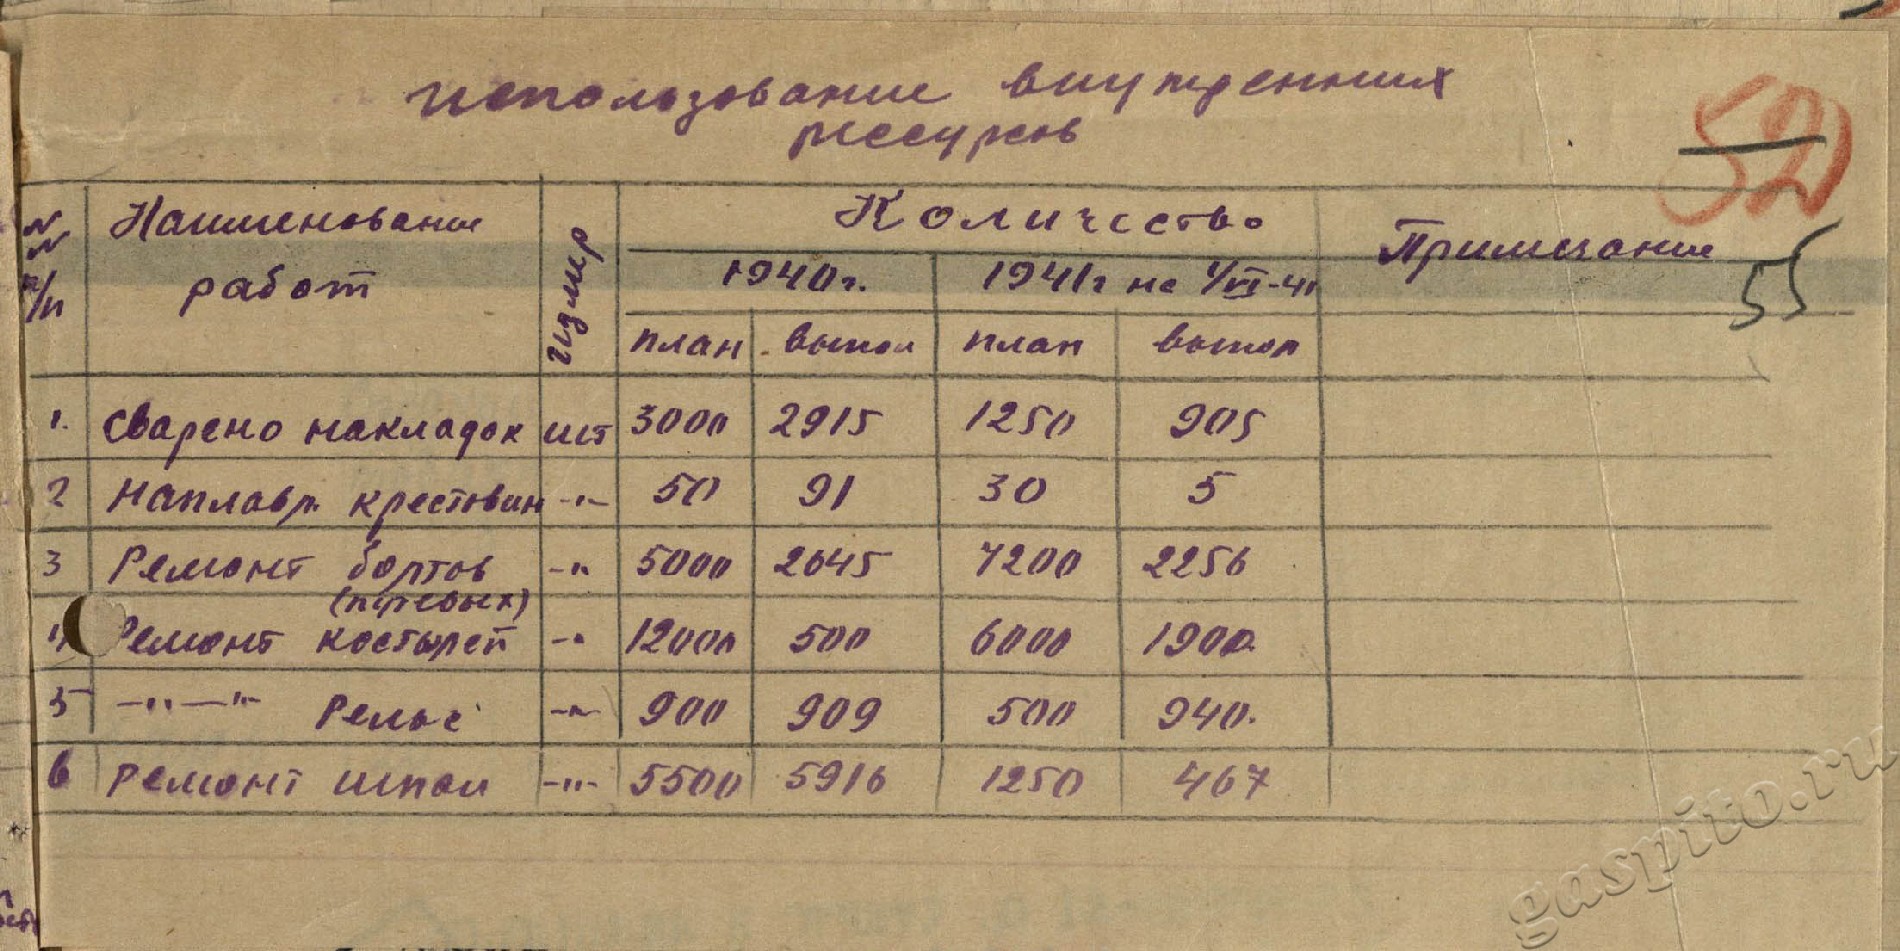 использование внутренних
рессурсов
52
55
№№ п/п
Наименование работ
измер
Количество
Примечание
1940г.
1941г на 1/VI-41
план выпол план выпол
1. Сварено накладок шт 3000 2915 1250 905
2 Наплавл. крестовин -"- 50 91 30 5
3 Ремонт болтов -"- 5000 2645 7200 2256
(путевых)
4 Ремонт костылей -"- 12000 500 6000 1900.
5 -"- -"- Рельс -"- 900 909 500 940.
6 Ремонт шпал -"- 5500 5916 1250 467
gaspito.ru